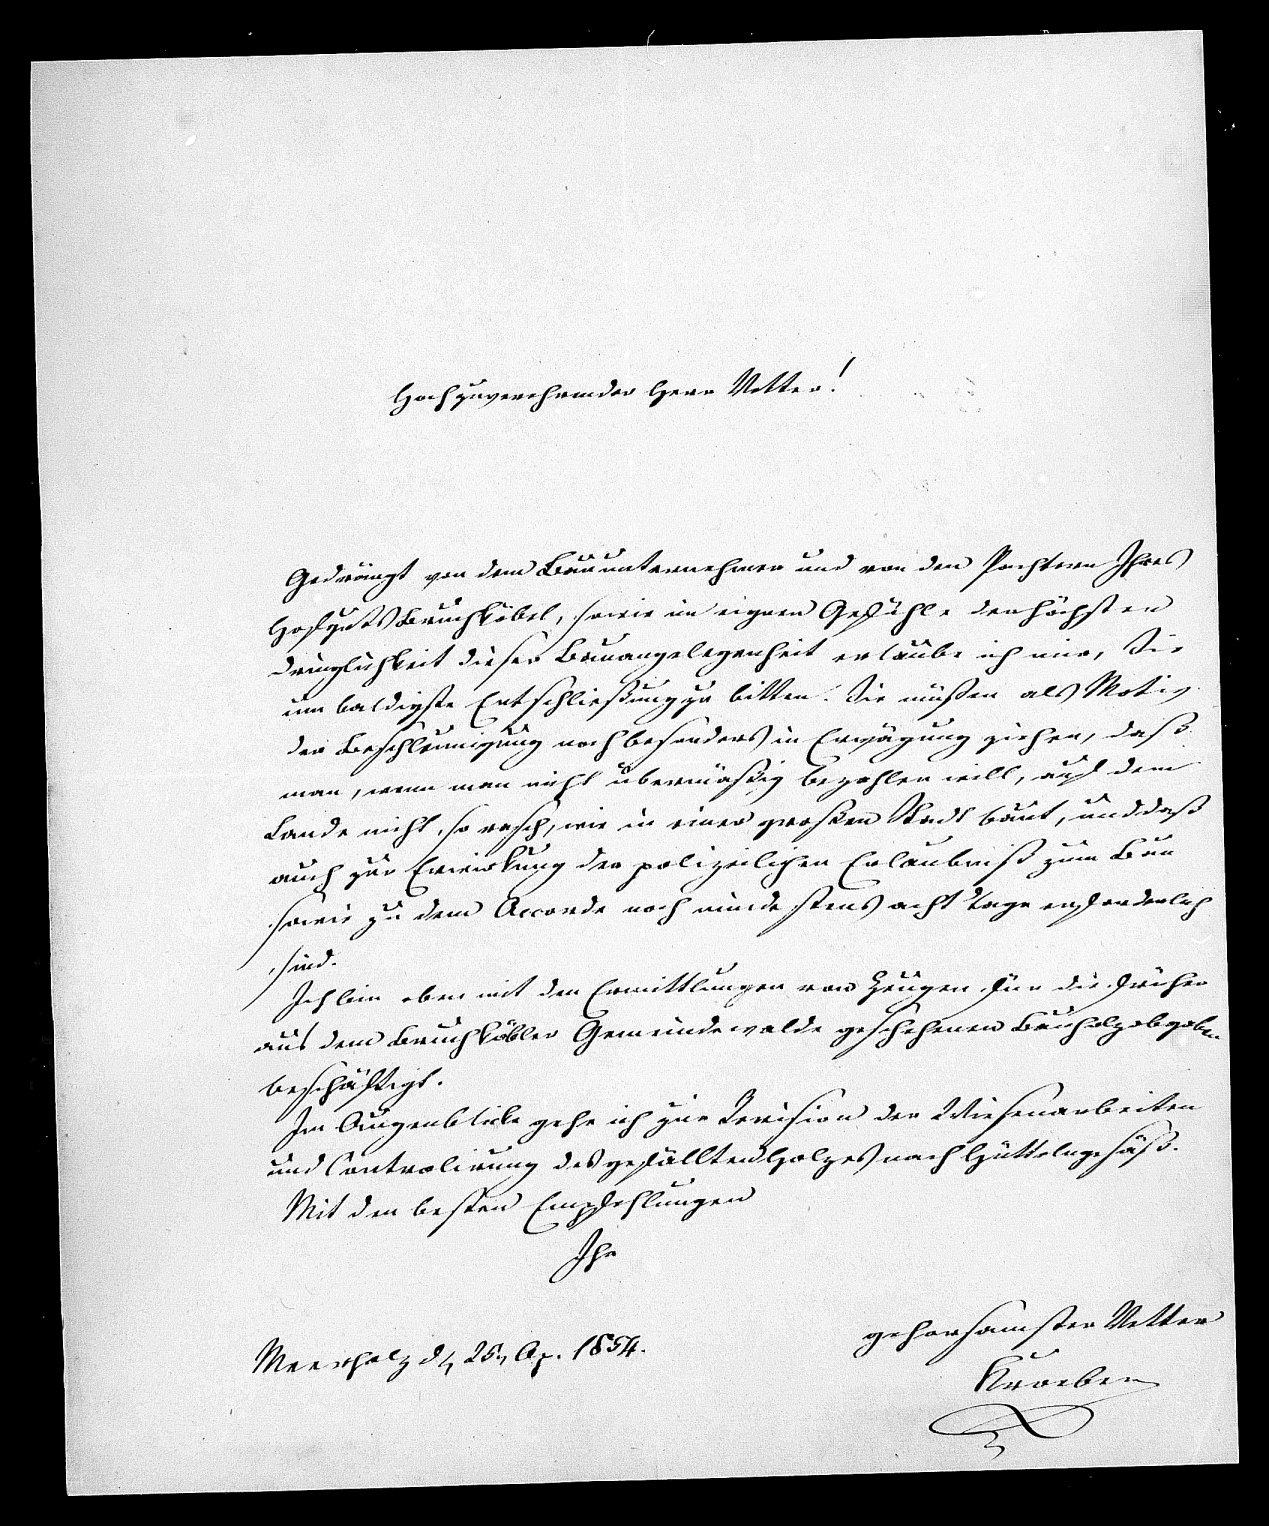 Hochzuverehrender Herr Vetter!
Gedrängt von dem Bauunternehmer und von den Pachtern Ihres
Hofguts Bruchköbel, sowie im eignen Gefühle der höchsten
Dringlichkeit dieser Bauangelegenheit erlaube ich mir, Sie
um baldigste Entschließung zu bitten. Sie müßen als Motiv
der Beschleunigung noch besonders in Erwägung ziehen, daß
man, wenn man nicht übermäßig bezahlen will, auf dem
Lande nicht so rasch, wie in einer großen Stadt baut, und daß
auch zur Erwirkung der polizeilichen Erlaubniß zum Bau
sowie zu dem Accorde noch mindestens acht Tage erforderlich
sind.
Ich bin eben mit den Ermittlungen von Zeugen für die früher
aus dem Bruchköbler Gemeindewalde geschehenen Bauholzabgaben
beschäftigt.
Im Augenblicke gehe ich zur Revision der Wiesenarbeiten
und Controlirung des gefällten Holzes nach Hüttelngesäß.
Mit den besten Empfehlungen
Ihr
gehorsamster Vetter
Meerholz d. 25. Ap. 1854.
Kroeber